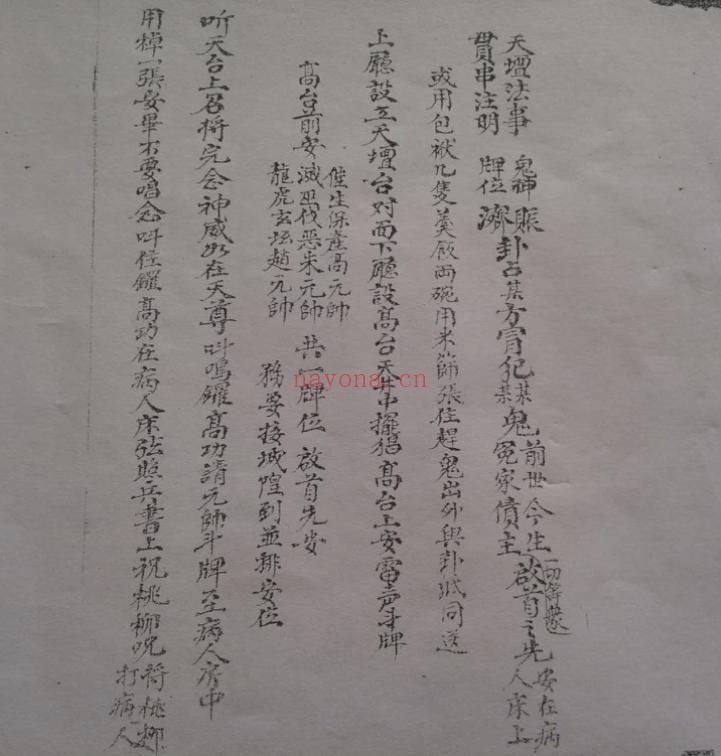 天壇法事 鬼神賬 卦占某方冒犯某某鬼 前世今生 一切解散 啟首之先 安在病
貫串注明 牌位濟 冤家債主 人床上
或用包袱几隻羹飯兩碗用米篩張住趕鬼出外與卦紙同送
上廳設立天壇台对面下廳設高台天井中擺猖高台上安雷声斗牌
催生保產高元帥
高台前安滅巫伐惡朱元帥 共一牌位 啟首先安
龍虎玄坛趙元帥 務要接城隍到並排安位
听天台上召将完念神威如在天尊叫鳴鑼高功請元帥斗牌至病人房中
用棹一張安畢不要唱念叫住鑼高功在病人床弦照兵書上祝桃柳咒將桃柳
打病人
nayona.cn